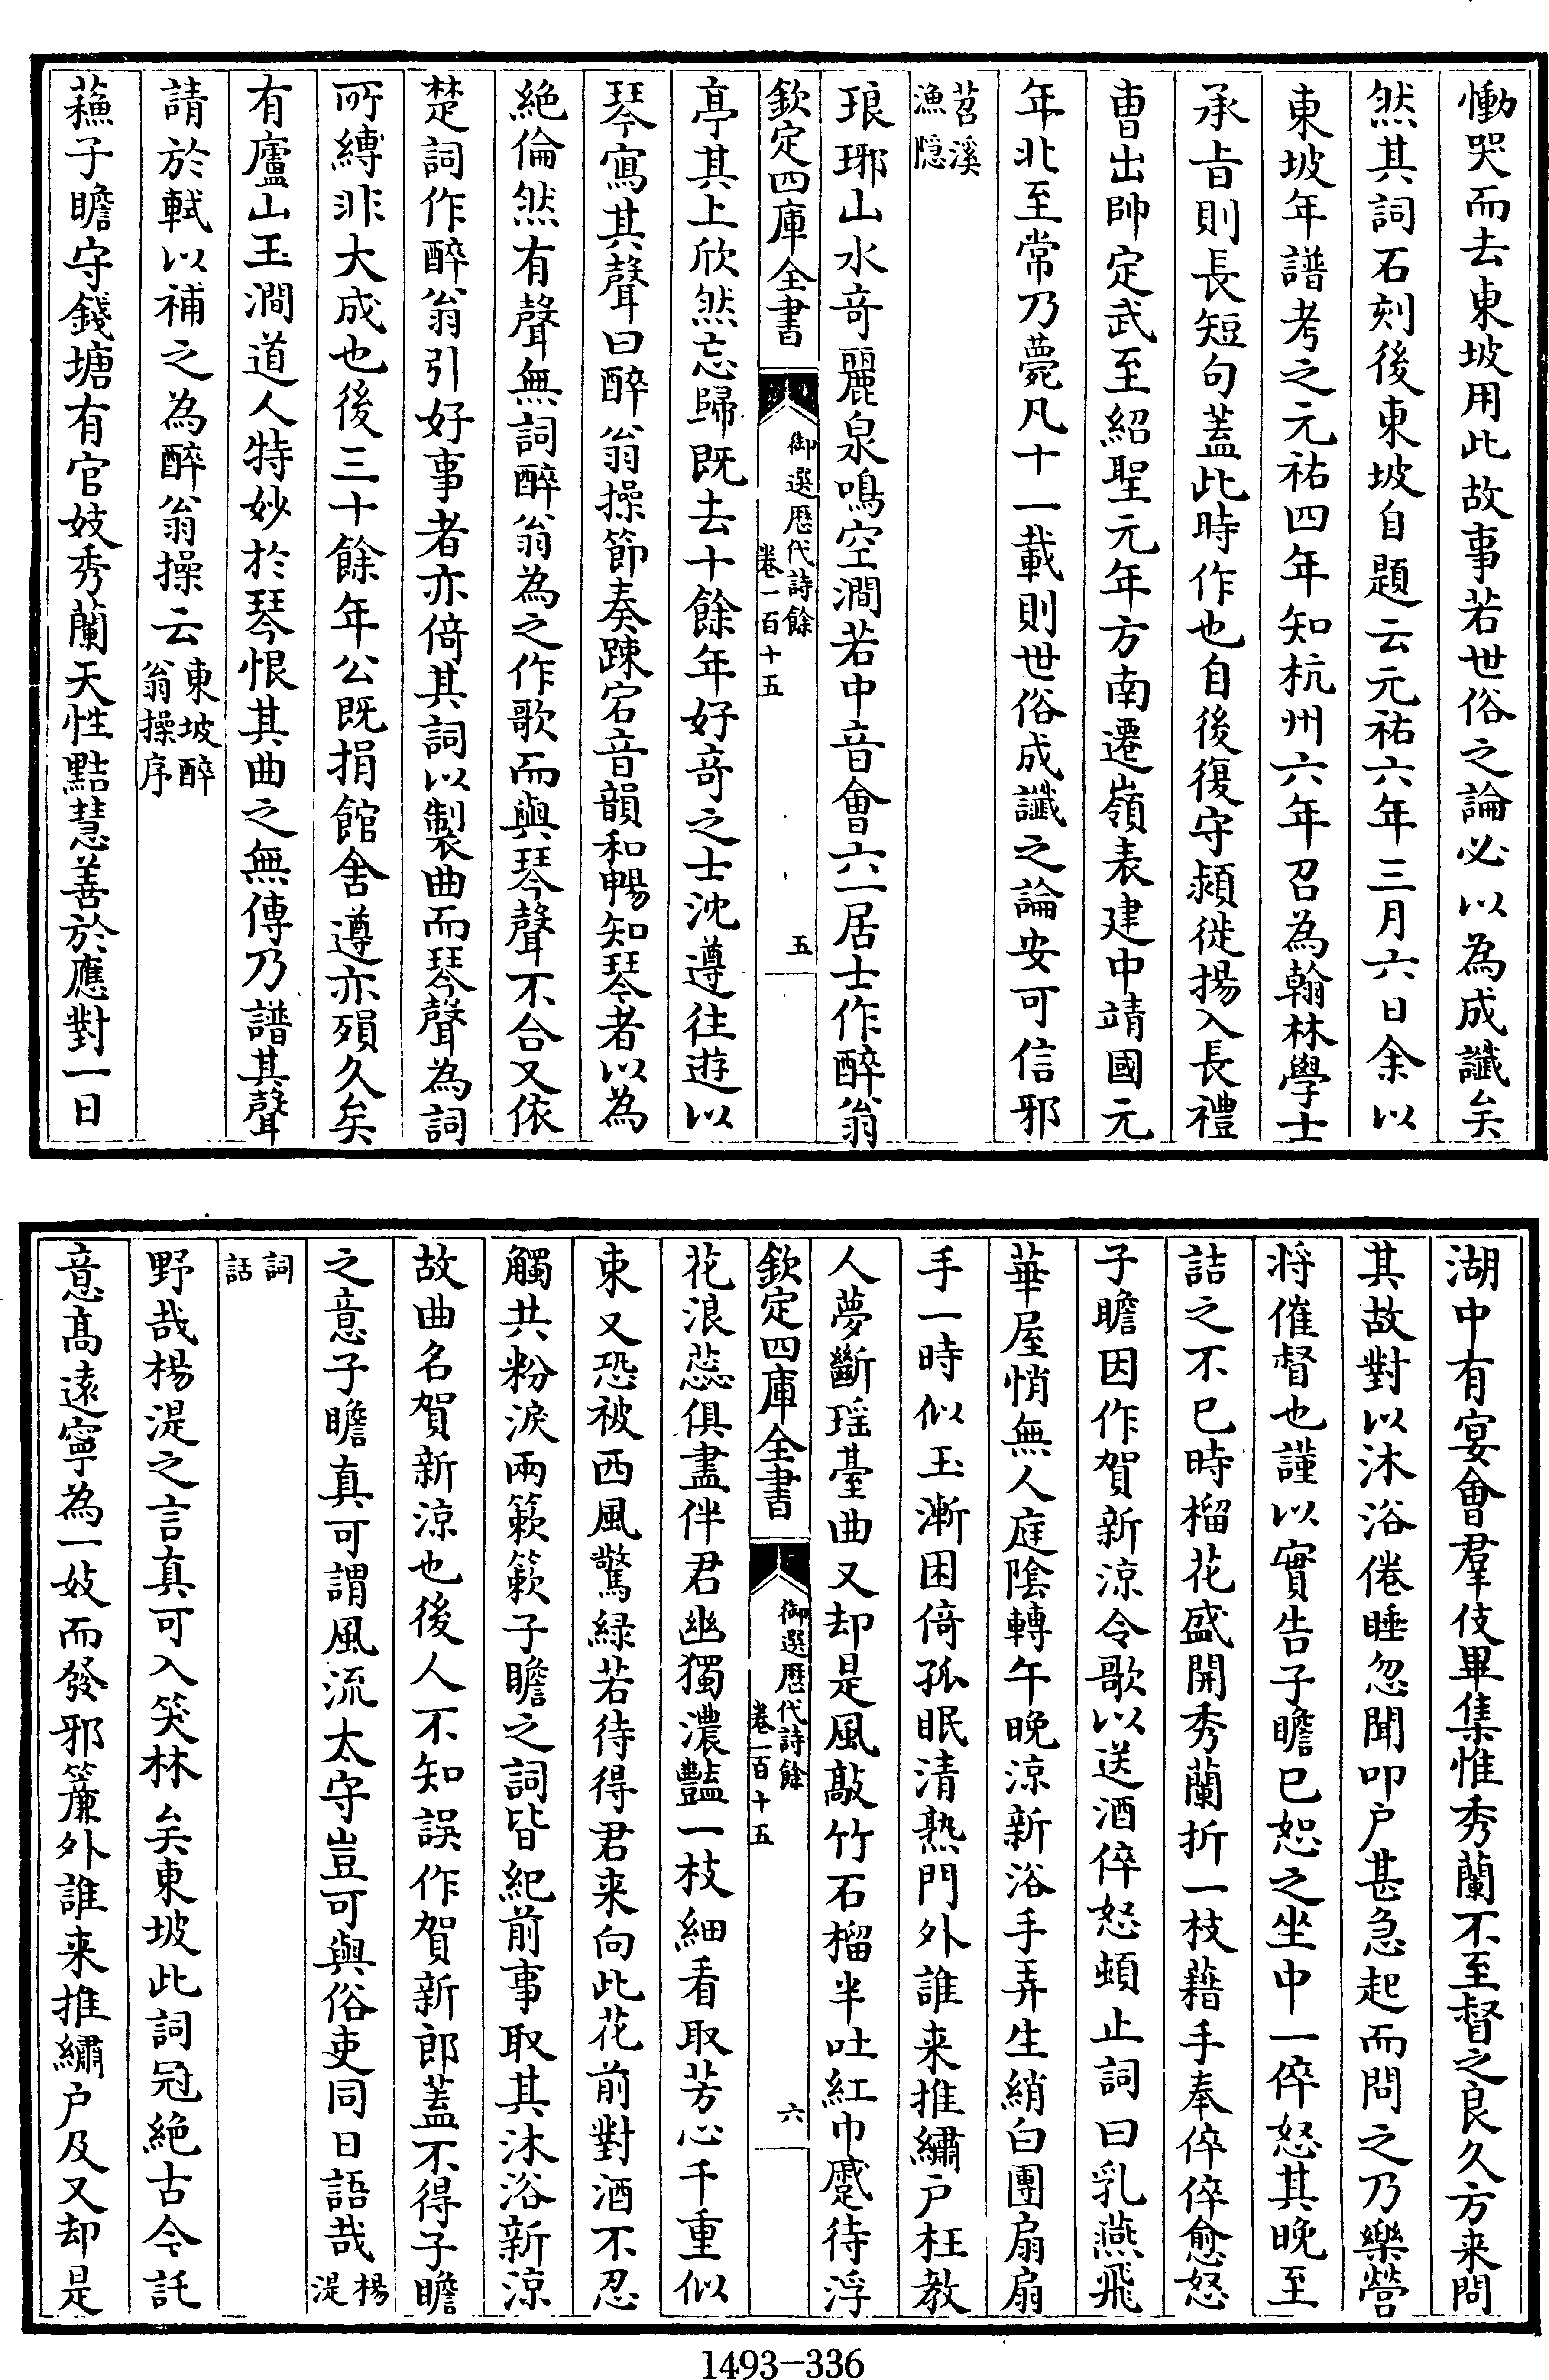 慟哭而去東坡用此故事若世俗之論必以為成讖矣
然其詞石刻後東坡自題云元祐六年三月六日余以
東坡年譜考之元祐四年知杭州六年召為翰林學士
承旨則長短句蓋此時作也自後復守潁徙揚入長禮
曹出帥定武至紹聖元年方南遷嶺表建中靖國元
年北至常乃薨凡十一載則世俗成讖之論安可信邪
苕溪
漁隠
琅琊山水奇麗泉鳴空澗若中音會六一居士作醉翁
欽定四庫全書
御選歴代詩餘
卷一百十五
五
亭其上欣然忘歸既去十餘年好奇之士沈遵往遊以
琴寫其聲曰醉翁操節奏踈宕音韻和暢知琴者以為
絶倫然有聲無詞醉翁為之作歌而與琴聲不合又依
楚詞作醉翁引好事者亦倚其詞以製曲而琴聲為詞
所縛非大成也後三十餘年公既捐館舍遵亦殞久矣
有廬山玉澗道人特妙於琴恨其曲之無傳乃譜其聲
請於軾以補之為醉翁操云
東坡醉
翁操序
蘓子瞻守錢塘有官妓秀蘭天性黠慧善於應對一日
湖中有宴會羣伎畢集惟秀蘭不至督之良久方来問
其故對以沐浴倦睡忽聞叩户甚急起而問之乃樂營
将催督也謹以實告子瞻已恕之坐中一倅怒其晚至
詰之不已時榴花盛開秀蘭折一枝藉手奉倅倅愈怒
子瞻因作賀新涼令歌以送酒倅怒頓止詞曰乳燕飛
華屋悄無人庭陰轉午晚涼新浴手弄生綃白團扇扇
手一時似玉漸困倚孤眠清熟門外誰来推繡户枉教
人夢斷瑶臺曲又却是風敲竹石榴半吐紅巾蹙待浮
欽定四庫全書
御選歴代詩餘
卷一百十五
六
花浪蕊俱盡伴君幽獨濃豔一枝細看取芳心千重似
束又恐被西風驚緑若待得君来向此花前對酒不忍
觸共粉淚兩簌簌子瞻之詞皆紀前事取其沐浴新涼
故曲名賀新涼也後人不知誤作賀新郎蓋不得子瞻
之意子瞻真可謂風流太守豈可與俗吏同日語哉
楊
湜
詞
話
野哉楊湜之言真可入笑林矣東坡此詞冠絶古今託
意髙遠寧為一妓而發邪簾外誰来推繡户及又却是
1493-336